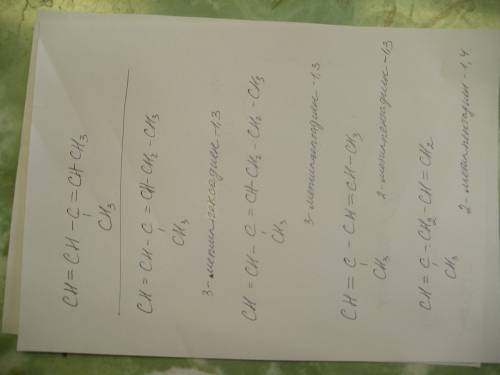 CH=CH-C=CH-CH3
CH3
CH=CH-C=CH-CH2-CH3
CH3
3-метилгексадиен-1,3
CH=CH-C=CH-CH2-CH2-CH3
CH3
3-метилгептадиен-1,3
CH=C-CH=CH-CH3
CH3
2-метилпентадиен-1,3
CH=C-CH2-CH=CH2
CH3
2-метилпентадиен-1,4